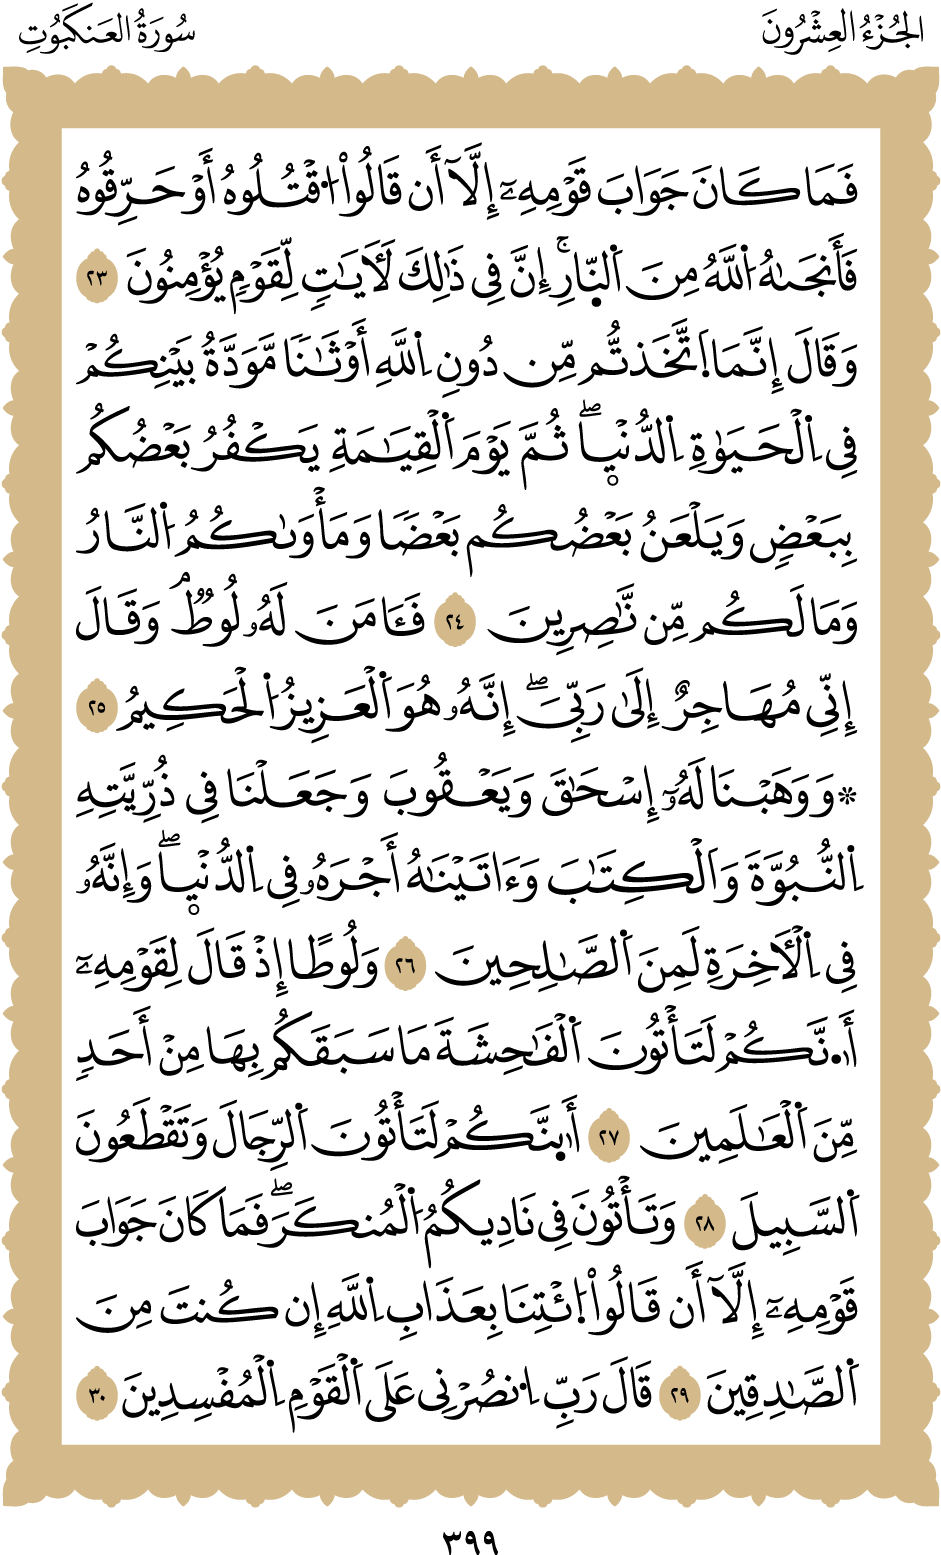 الجُزْءُ العِشْرُونَ
سُورَةُ العَنكَبُوتِ
فَمَا كَانَ جَوَابَ قَوْمِهِۦٓ إِلَّآ أَن قَالُوا۟ اُ۟قْتُلُوهُ أَوْ حَرِّقُوهُ
فَأَنجَىٰهُ اُ۬للَّهُ مِنَ اَ۬لنّ۪ارِۚ إِنَّ فِى ذَٰلِكَ لَأٓيَٰتٍ لِّقَوْمٍ يُؤْمِنُونَ ٢٣
وَقَالَ إِنَّمَا اَ۪تَّخَذتُّم مِّن دُونِ اِ۬للَّهِ أَوْثَٰنٗا مَّوَدَّةُ بَيْنِكُمْ
فِى اِ۬لْحَيَوٰةِ اِ۬لدُّنْي۪اۖ ثُمَّ يَوْمَ اَ۬لْقِيَٰمَةِ يَكْفُرُ بَعْضُكُم
بِبَعْضٖ وَيَلْعَنُ بَعْضُكُم بَعْضٗا وَمَأْوَىٰكُمُ اُ۬لنَّارُ
وَمَا لَكُم مِّن نَّٰصِرِينَ ٢٤ فَـَٔامَنَ لَهُۥ لُوطٞۘ وَقَالَ
إِنِّى مُهَاجِرٌ إِلَىٰ رَبِّىَۖ إِنَّهُۥ هُوَ اَ۬لْعَزِيزُ اُ۬لْحَكِيمُ ٢٥
۞ وَوَهَبْنَا لَهُۥٓ إِسْحَٰقَ وَيَعْقُوبَ وَجَعَلْنَا فِى ذُرِّيَّتِهِ
اِ۬لنُّبُوَّةَ وَالْكِتَٰبَ وَءَاتَيْنَٰهُ أَجْرَهُۥ فِى اِ۬لدُّنْي۪اۖ وَإِنَّهُۥ
فِى اِ۬لْأٓخِرَةِ لَمِنَ اَ۬لصَّٰلِحِينَ ٢٦ وَلُوطًا إِذْ قَالَ لِقَوْمِهِۦٓ
أَا۬۟نَّكُمْ لَتَأْتُونَ اَ۬لْفَٰحِشَةَ مَا سَبَقَكُم بِهَا مِنْ أَحَدٖ
مِّنَ اَ۬لْعَٰلَمِينَ ٢٧ أَا۪۟نَّكُمْ لَتَأْتُونَ اَ۬لرِّجَالَ وَتَقْطَعُونَ
اَ۬لسَّبِيلَ ٢٨ وَتَأْتُونَ فِى نَادِيكُمُ اُ۬لْمُنكَرَۖ فَمَا كَانَ جَوَابَ
قَوْمِهِۦٓ إِلَّآ أَن قَالُوا۟ اُ۪ئْتِنَا بِعَذَابِ اِ۬للَّهِ إِن كُنتَ مِنَ
اَ۬لصَّٰدِقِينَ ٢٩ قَالَ رَبِّ اِ۟نصُرْنِى عَلَى اَ۬لْقَوْمِ اِ۬لْمُفْسِدِينَ ٣٠
٣٩٩